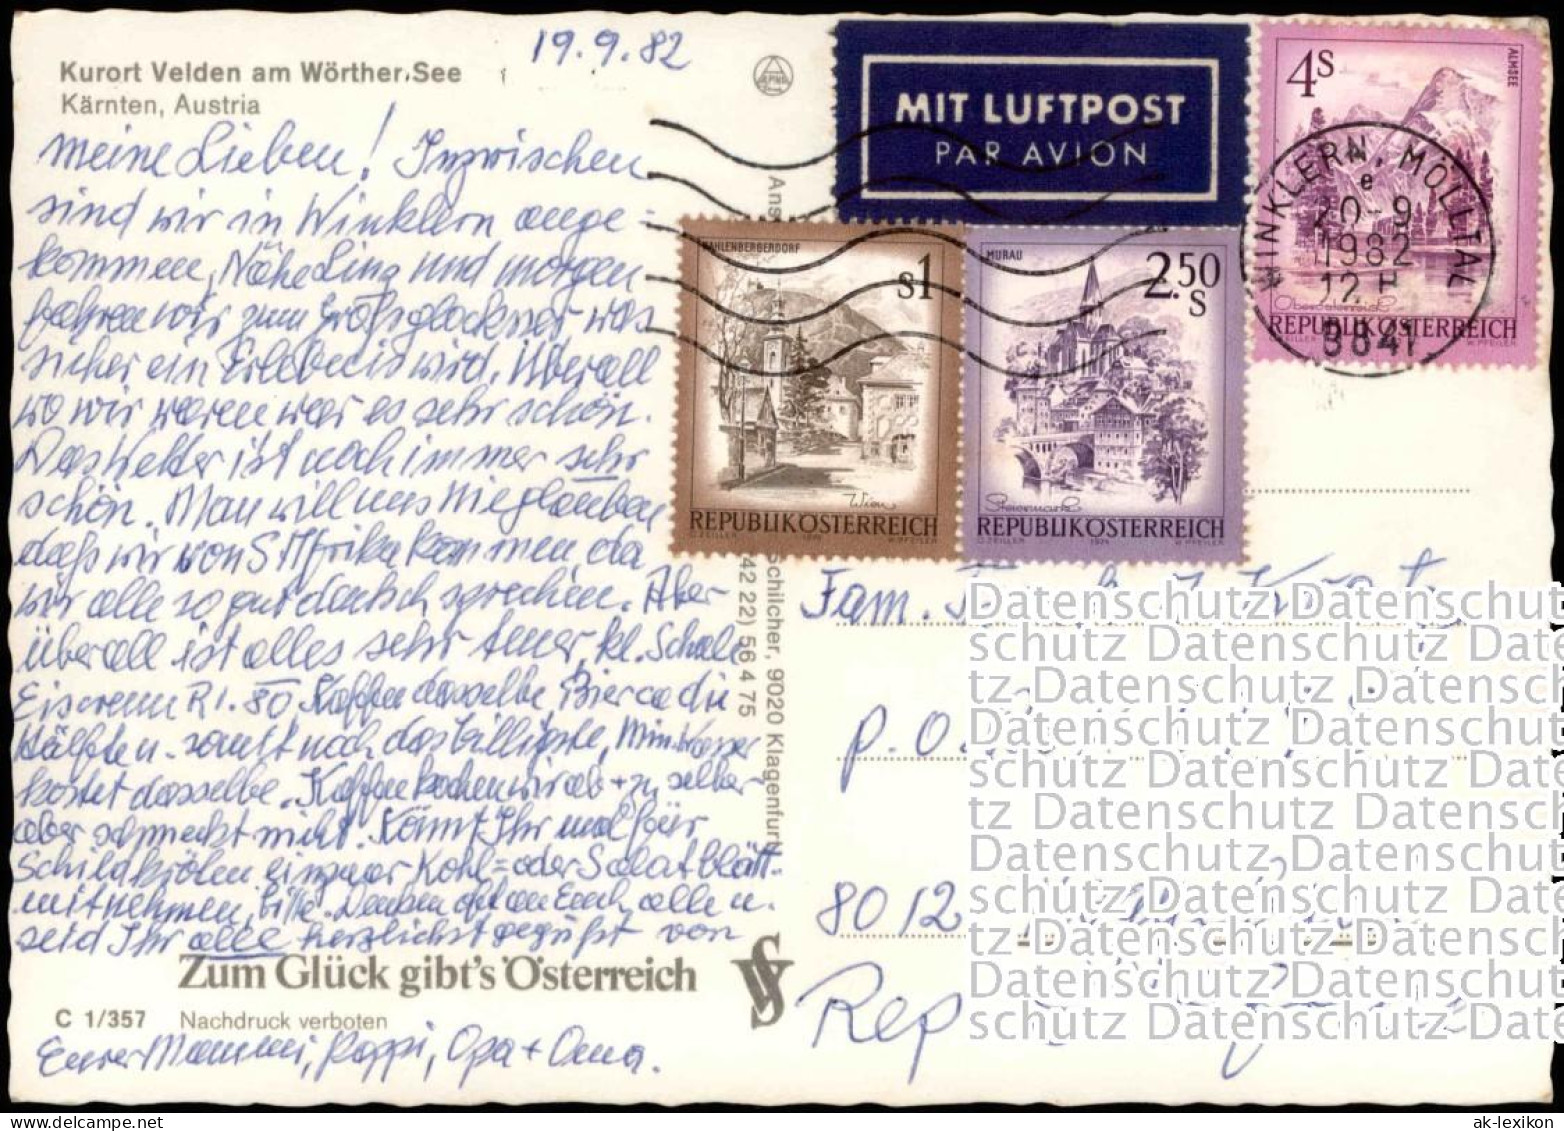 19.9.82
Kurort Velden am Wörther See
Kärnten, Austria
meine Lieben! Inzwischen
sind wir in Winklern ange-
kommen, Nähe Linz und morgen
fahren wir zum Großglockner was
sicher ein Erlebnis wird. Überall
wo wir waren war es sehr schön.
Das Wetter ist noch immer sehr
schön. Man will uns nie glauben
daß wir von S Afrika kommen, da
wir alle so gut deutsch sprechen. Aber
überall ist alles sehr teuer, kl. Schale
Eiscrem R 1.80 Kaffee dasselbe, Bier ca die
Hälfte u. somit noch das billigste, Min. Wasser
kostet dasselbe. Kaffee kochen wir ab + zu selber
aber schmeckt nicht. Könnt Ihr mal für
Schildkröten ein paar Kohl= oder Salatblätt.
mitnehmen, bitte. Denken oft an Euch alle u.
seid Ihr alle herzlichst gegrüßt von
Zum Glück gibt's Österreich
C 1/357 Nachdruck verboten
Eurer Mammi, Pappi, Opa + Oma.
Schilcher, 9020 Klagenfurt
42 22) 56 4 75
MIT LUFTPOST
PAR AVION
KAHLENBERGERDORF
s1
Wien
REPUBLIK ÖSTERREICH
O. ZEILER W. PFEILER
MURAU
2.50 S
Steiermark
REPUBLIK ÖSTERREICH
O. ZEILER 1974 W. PFEILER
4 S
ALMSEE
Oberösterreich
REPUBLIK ÖSTERREICH
WINKLERN, MÖLLTAL
e
20-9
1982
12 H
9841
Fam.
P.O.
8012
Rep
Datenschutz Datenschut
schutz Datenschutz Date
tz Datenschutz Datensc
Datenschutz Datenschut
schutz Datenschutz Date
tz Datenschutz Datensc
Datenschutz Datenschut
schutz Datenschutz Date
tz Datenschutz Datensc
Datenschutz Datenschut
schutz Datenschutz Date
ak-lexikon